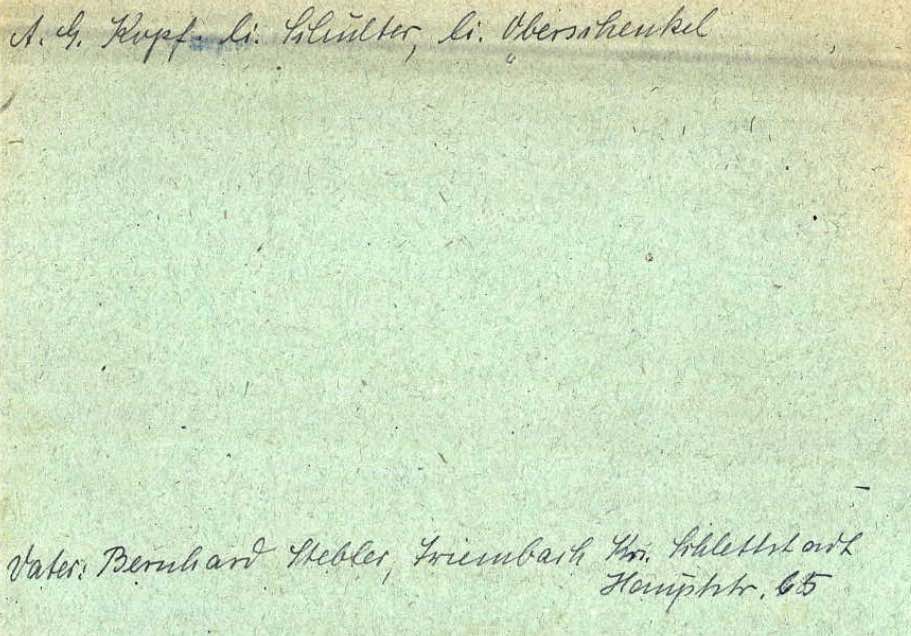 A. G. Kopf. li. Schulter, li. Oberschenkel
Vater: Bernhard Stebler, Triembach Krs. Schlettstadt
Hauptstr. 65